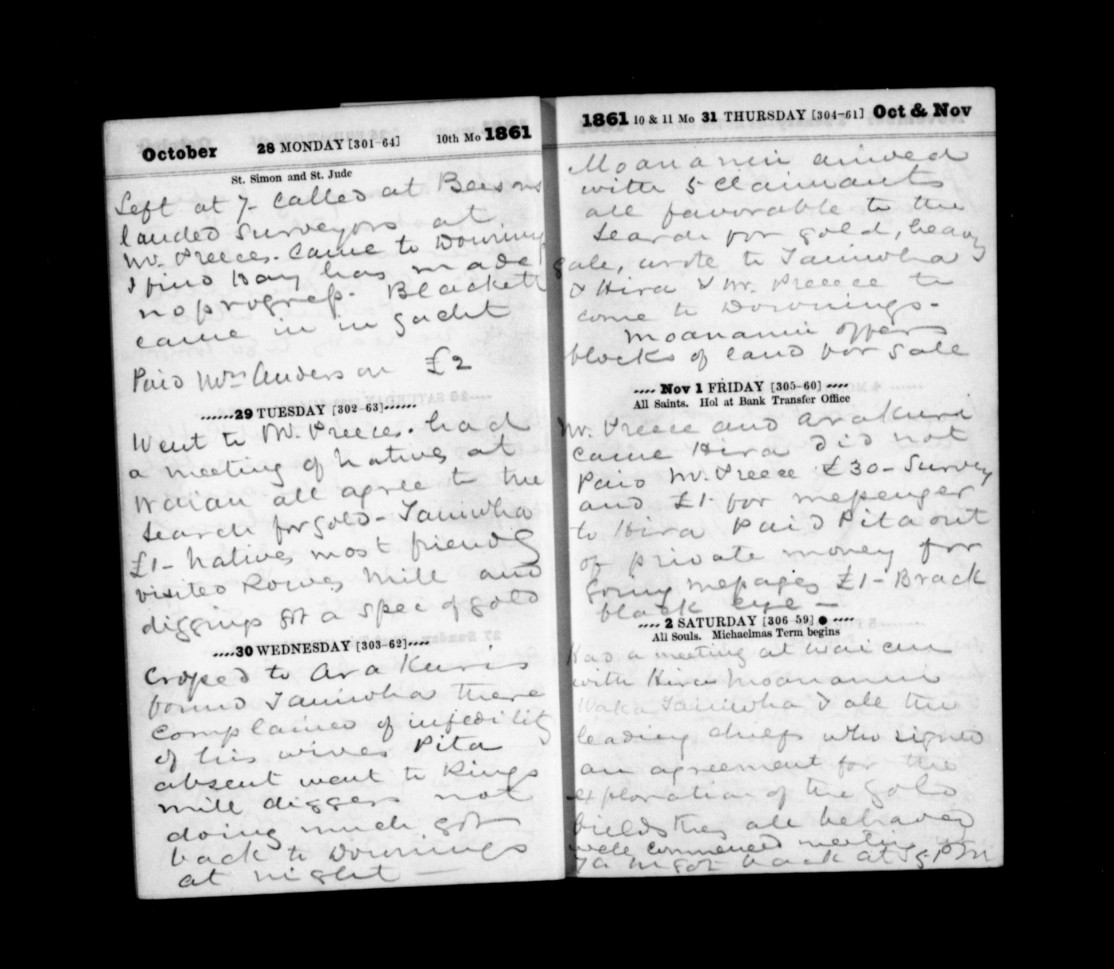 October 28 MONDAY [301-64] 10th Mo 1861
St. Simon and St. Jude
Left at 7- called at Beesons
landed surveyors at
Mr. Preeces. Came to Downing
& find Bay has made
no progress. Blackett
came in in yacht
Paid Mrs Anderson £2
29 TUESDAY [302-63]
Went to Mr. Preeces. had
a meeting of Natives at
Waiau all agree to the
search for gold - Taniwha
£1 - Natives most friendly
visited Rowes Mill and
diggings got a spec of gold
30 WEDNESDAY [303-62]
Crosed to Ara Kuris
found Taniwha there
complained of infedility
of his wives Pita
absent went to Kings
mill diggers not
doing much got
back to Downings
at night —
1861 10 & 11 Mo 31 THURSDAY [304-61] Oct & Nov
Moananui arrived
with 5 claimants
all favorable to the
search for gold, heavy
gale, wrote to Taniwha
& Hira & Mr. Preece to
come to Downings -
Moananui offers
blocks of land for sale
Nov 1 FRIDAY [305-60]
All Saints. Hol at Bank Transfer Office
Mr. Preece and Arakuri
came Hira did not
Paid Mr. Preece £30 - Survey
and £1 for messenger
to Hira Paid Pita out
of private money for
going messages £1 - Brack
black eye —
2 SATURDAY [306-59]
All Souls. Michaelmas Term begins
Had a meeting at Waiau
with Hira Moananui
Waka Taniwha & all the
leading chiefs who signed
an agreement for the
exploration of the gold
fields they all behaved
well commenced meeting at
7 a m got back at 9. P M